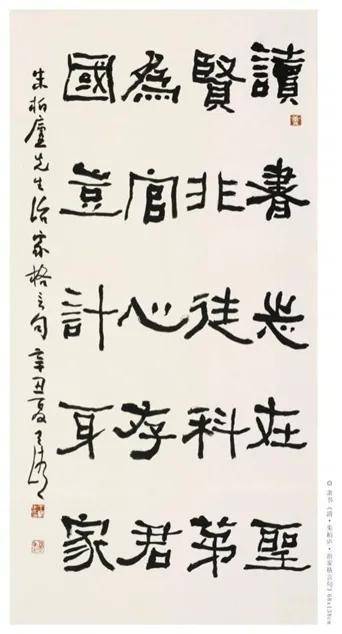 讀書志在聖
賢非徒科第
為官心存君
國豈計身家
朱柏廬先生治家格言句 辛丑夏
隶书《清·朱柏庐·治家格言句》68x138cm